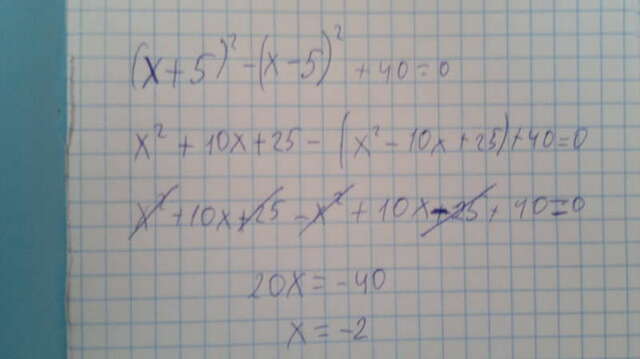 (x+5)² - (x-5)² + 40 = 0
x² + 10x + 25 - (x² - 10x + 25) + 40 = 0
x² + 10x + 25 - x² + 10x - 25 + 40 = 0
20x = -40
x = -2